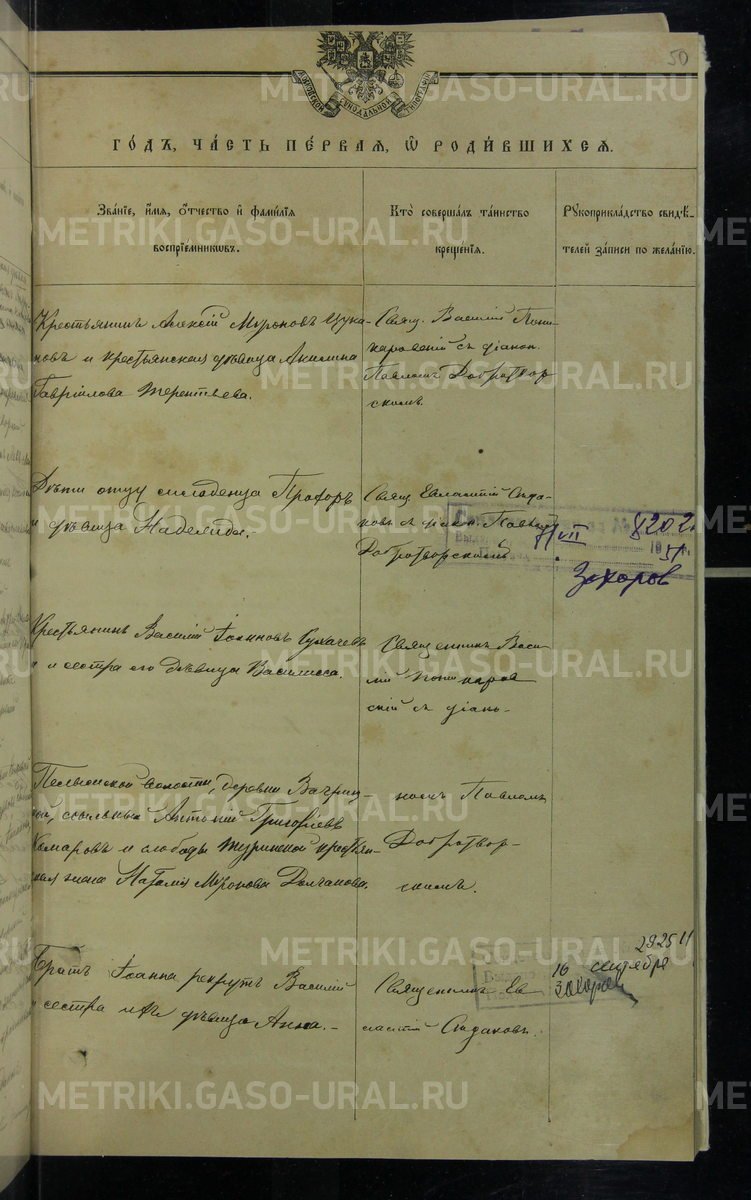 50
МОСКОВСКОЙ СѴНОДАЛЬНОЙ ТИПОГРАФІИ
ГО́ДЪ, ЧА́СТЬ ПЕ́РВАЯ, Ѿ РОДИ́ВШИХСЯ.
Зва́ніе, и́мя, о́тчество и҆ фами́лія
воспріе́мниковъ.
Кто̀ соверша́лъ та́инство
креще́нія.
Рукоприкла́дство свидѣ́-
телей за́писи по жела́нію.
Крестьянинъ Алексій Мѵроновъ Цука-
новъ и крестьянская дѣвица Акилина
Гавріилова Терентьева.
Свящ. Василій Пони-
наровскій съ діакон.
Павломъ Добротвор-
скимъ.
Дѣти отцу младенца Прохоръ
и дѣвица Надежда.-
Свящ Евлампій Судо-
ковъ съ діакон. Павлом
Добротворскимъ
8202
VII
Захаров
Крестьянинъ Василій Іоанновъ Сухачевъ
и сестра его дѣвица Василисса.
Священникъ Васи-
лій Понинаров-
скій съ діако-
Пелымской волости, деревни Вагриц-
кой, ссыльный Антоній Григорьевъ
Комаровъ и слободы Туринской крестьян-
ская жена Наталія Мѵронова Долганова.
номъ Павломъ
Добротвор-
скимъ.
29251
16 сентября
Захаров
Братъ Іоанна рекрутъ Василій
и сестра ихъ дѣвица Анна.-
Священникъ Ев-
лампій Судаковъ.
METRIKI.GASO-URAL.RU